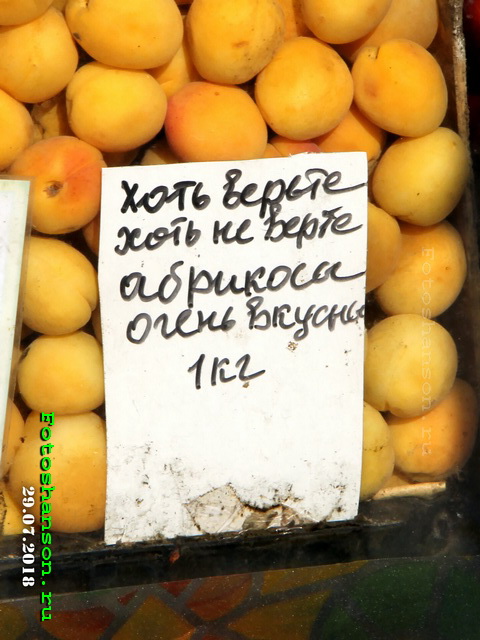 хоть верьте
хоть не верте
абрикосы
очень вкусны
1кг
Fotoshanson.ru
29.07.2018
Fotoshanson.ru